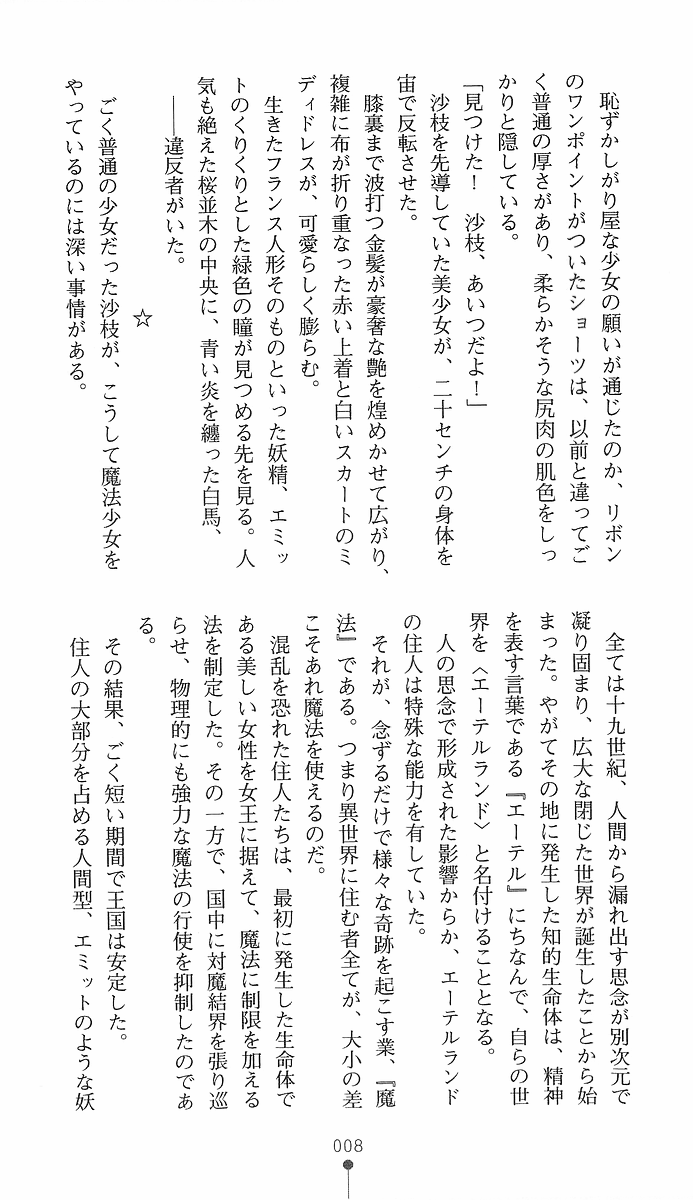 「見つけた！　沙枝、あいつだよ！」
沙枝を先導していた美少女が、二十センチの身体を
宙で反転させた。
膝裏まで波打つ金髪が豪奢な艶を煌めかせて広がり、
複雑に布が折り重なった赤い上着と白いスカートのミ
ディドレスが、可愛らしく膨らむ。
生きたフランス人形そのものといった妖精、エミッ
トのくりくりとした緑色の瞳が見つめる先を見る。人
気も絶えた桜並木の中央に、青い炎を纏った白馬、
――違反者がいた。
☆
ごく普通の少女だった沙枝が、こうして魔法少女を
やっているのには深い事情がある。
全ては十九世紀、人間から漏れ出す思念が別次元で
凝り固まり、広大な閉じた世界が誕生したことから始
まった。やがてその地に発生した知的生命体は、精神
を表す言葉である『エーテル』にちなんで、自らの世
界を〈エーテルランド〉と名付けることとなる。
人の思念で形成された影響からか、エーテルランド
の住人は特殊な能力を有していた。
それが、念ずるだけで様々な奇跡を起こす業、『魔
法』である。つまり異世界に住む者全てが、大小の差
こそあれ魔法を使えるのだ。
混乱を恐れた住人たちは、最初に発生した生命体で
ある美しい女性を女王に据えて、魔法に制限を加える
法を制定した。その一方で、国中に対魔結界を張り巡
らせ、物理的にも強力な魔法の行使を抑制したのであ
る。
その結果、ごく短い期間で王国は安定した。
住人の大部分を占める人間型、エミットのような妖
008